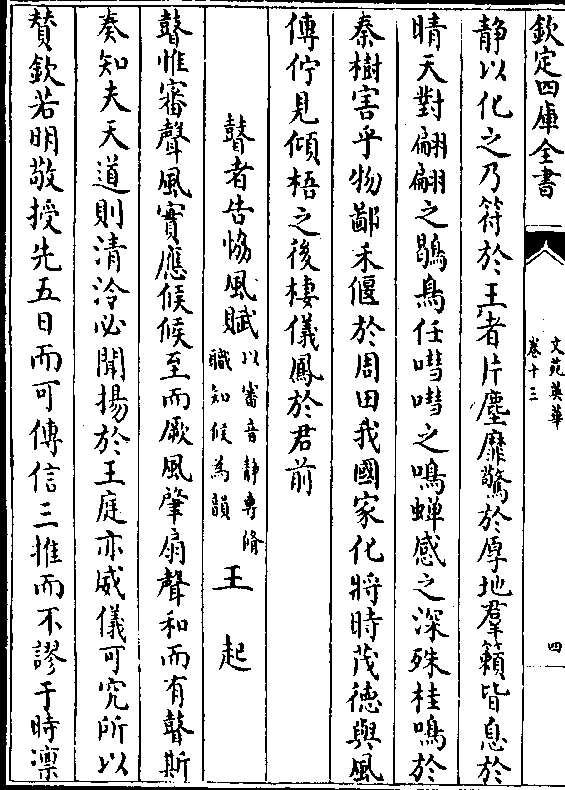 欽定四庫全書
文苑英華
卷十三
四
静以化之乃符於王者片塵靡驚於厚地羣籟皆息於
晴天對翩翩之鶡鳥任嘒嘒之鳴蟬感之深殊桂鳴於
秦樹害乎物鄙禾偃於周田我國家化將時茂德與風
傳佇見傾梧之後棲儀鳳於君前
瞽者告恊風賦以審音静專脩
職知候為韻
王起
瞽惟審聲風實應候候至而厥風肇扇聲和而有瞽斯
奏知夫天道則清泠必聞揚於王庭亦威儀可究所以
賛欽若明敬授先五日而可傳信三推而不謬于時凛